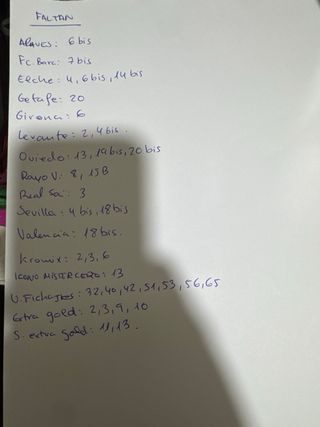 FALTAN
ALAVES: 6 bis
Fc. Barc: 7 bis
Elche: 4, 6 bis, 14 bis
Getafe: 20
Girona: 6
Levante: 2, 4 bis.
Oviedo: 13, 19 bis, 20 bis
Rayo V: 8, 15B
Real Soc: 3
Sevilla: 4 bis, 18 bis
Valencia: 18 bis.
Kromux: 2, 3, 6
ICONO MISTERCROMO: 13
U. Fichajes: 32, 40, 42, 51, 53, 56, 65
Extra gold: 2, 3, 9, 10
S. extra gold: 11, 13.